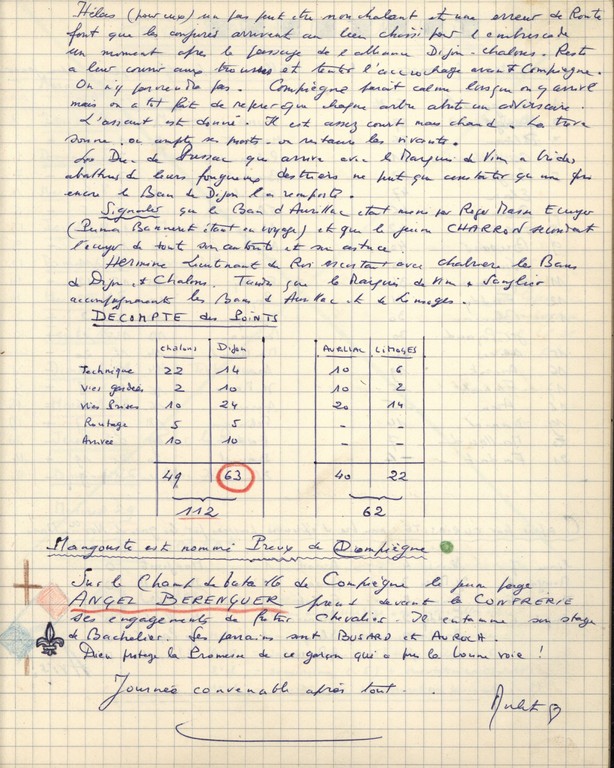 Hélas (pour eux) un pas peut être nonchalant et une erreur de Route
font que les conjurés arrivent au lieu choisi pour l'embuscade
un moment après le passage de l'alliance Dijon - chalons. Reste
à leur courir aux trousses et tenter l'accrochage avant Compiègne.
On n'y parviendra pas. Compiègne paraît calme lorsque on y arrive
mais on a tôt fait de repérer que chaque arbre abrite un adversaire.
L'assaut est donné. Il est assez court mais chaud. La trève
sonne, on compte ses morts - on restaure les vivants.
Le Duc de que arrive avec le Marquis de Vim à brides
abattues de leurs fougueux destriers ne peut que constater qu'une fois
encore le Ban de Dijon l'a remporté.
Signaler que le Ban d'Aurillac était mené par Roger Ecuyer
( Banneret étant en voyage) et que le jeune CHARRON secondait
l'écuyer de toute son autorité et son astuce.
HERMINE Lieutenant du Roi escortait avec les Bans
de Dijon et Chalons. Tandis que le Marquis de Vim et Sanglier
accompagnaient les Bans d'Aurillac et de Limoges.
DECOMPTE des POINTS
chalons Dijon AURILLAC LIMOGES
Technique 22 14 10 6
Vies gardées 2 10 10 2
Vies Prises 10 24 20 14
Routage 5 5 - -
Arrivée 10 10 - -
49 63 40 22
112 62
Mangouste est nommé Preux de Compiègne
Sur le Champ de bataille de Compiègne le jeune page
ANGEL BERENGUER prend devant la CONFRERIE
ses engagements de futur Chevalier. Il entame son stage
de Bachelier. Ses parrains sont BUSARD et AUROCH.
Dieu protège la Promesse de ce garçon qui a pris la bonne voie !
Journée convenable après tout.